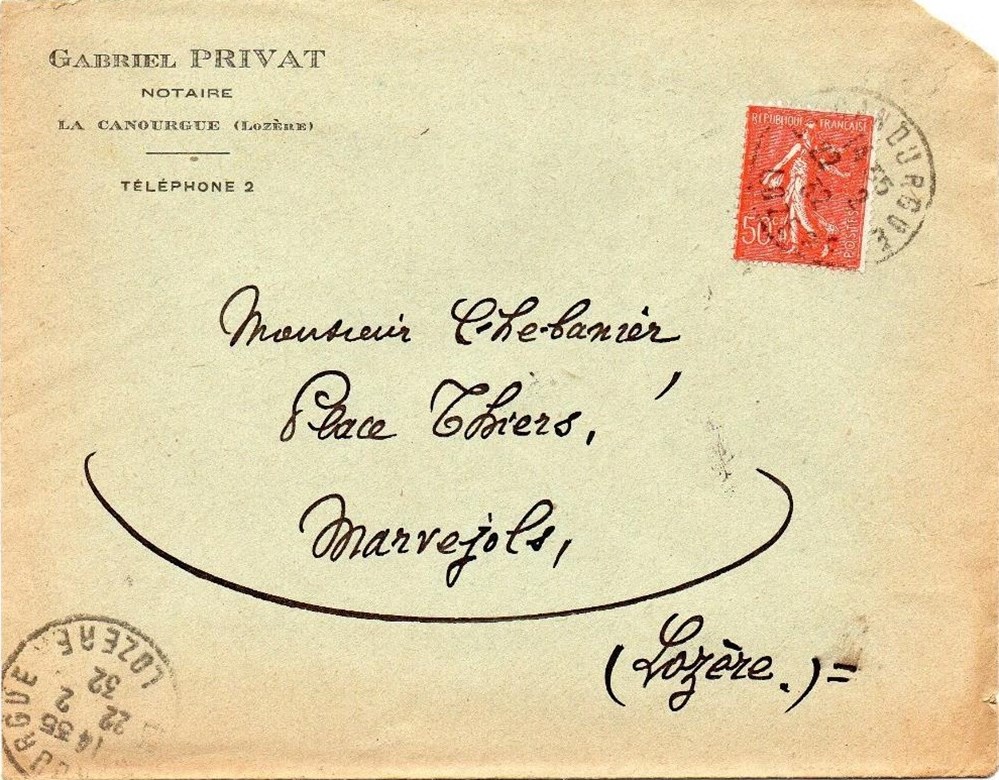 GABRIEL PRIVAT
NOTAIRE
LA CANOURGUE (LOZÈRE)
TÉLÉPHONE 2
RÉPUBLIQUE FRANÇAISE
50c
POSTES
CANOURGUE
Monsieur Chebanier,
Place Thiers,
Marvejols,
(Lozère.)=
LOZERE
14 35
22 2
32